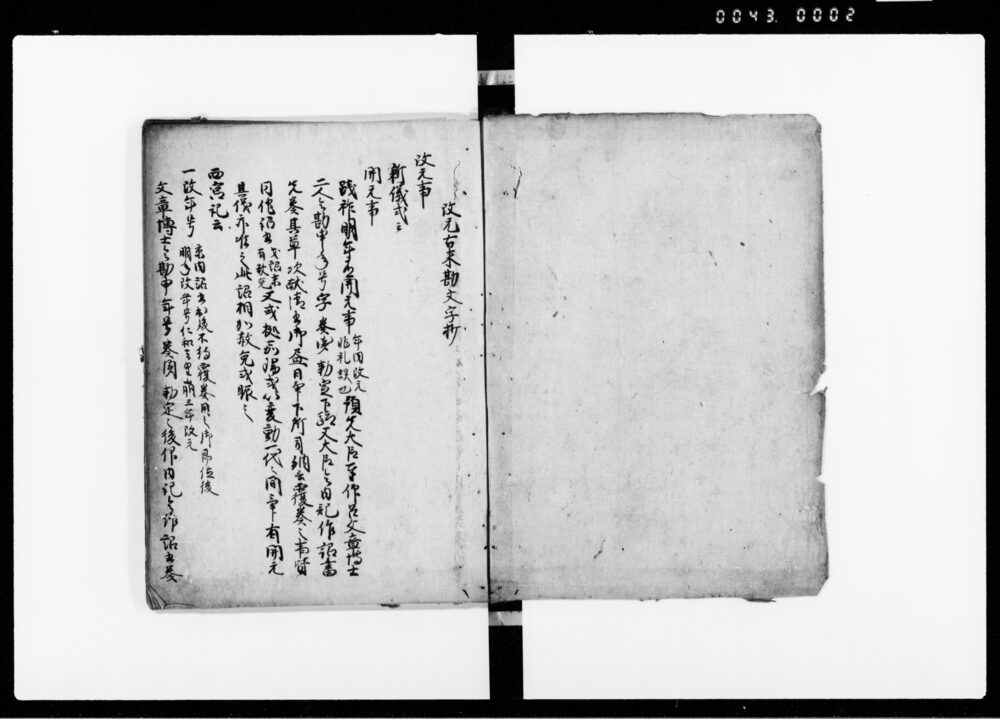 0043 0002
改元古来勘文字抄
改元事
新儀式云
開元事
践祚明年有開元事 年内改元
非礼誤也 預先大臣奉作召文章博士
二人令勘申年号字奏聞勅定下給又大臣令内記作詔書
先奏其草次献清書御畫日年下所司納
同作詔書 或詔未
有赦 又或 一代之間 有開元
其儀亦准之此詔相加赦免或賑
西宮記云
一改年号 京内詔書出後不待覆奏用之御即位後
明年改年号仁和 三年改元
文章博士令勘申年号奏聞勅定之後作内記令作詔書奏